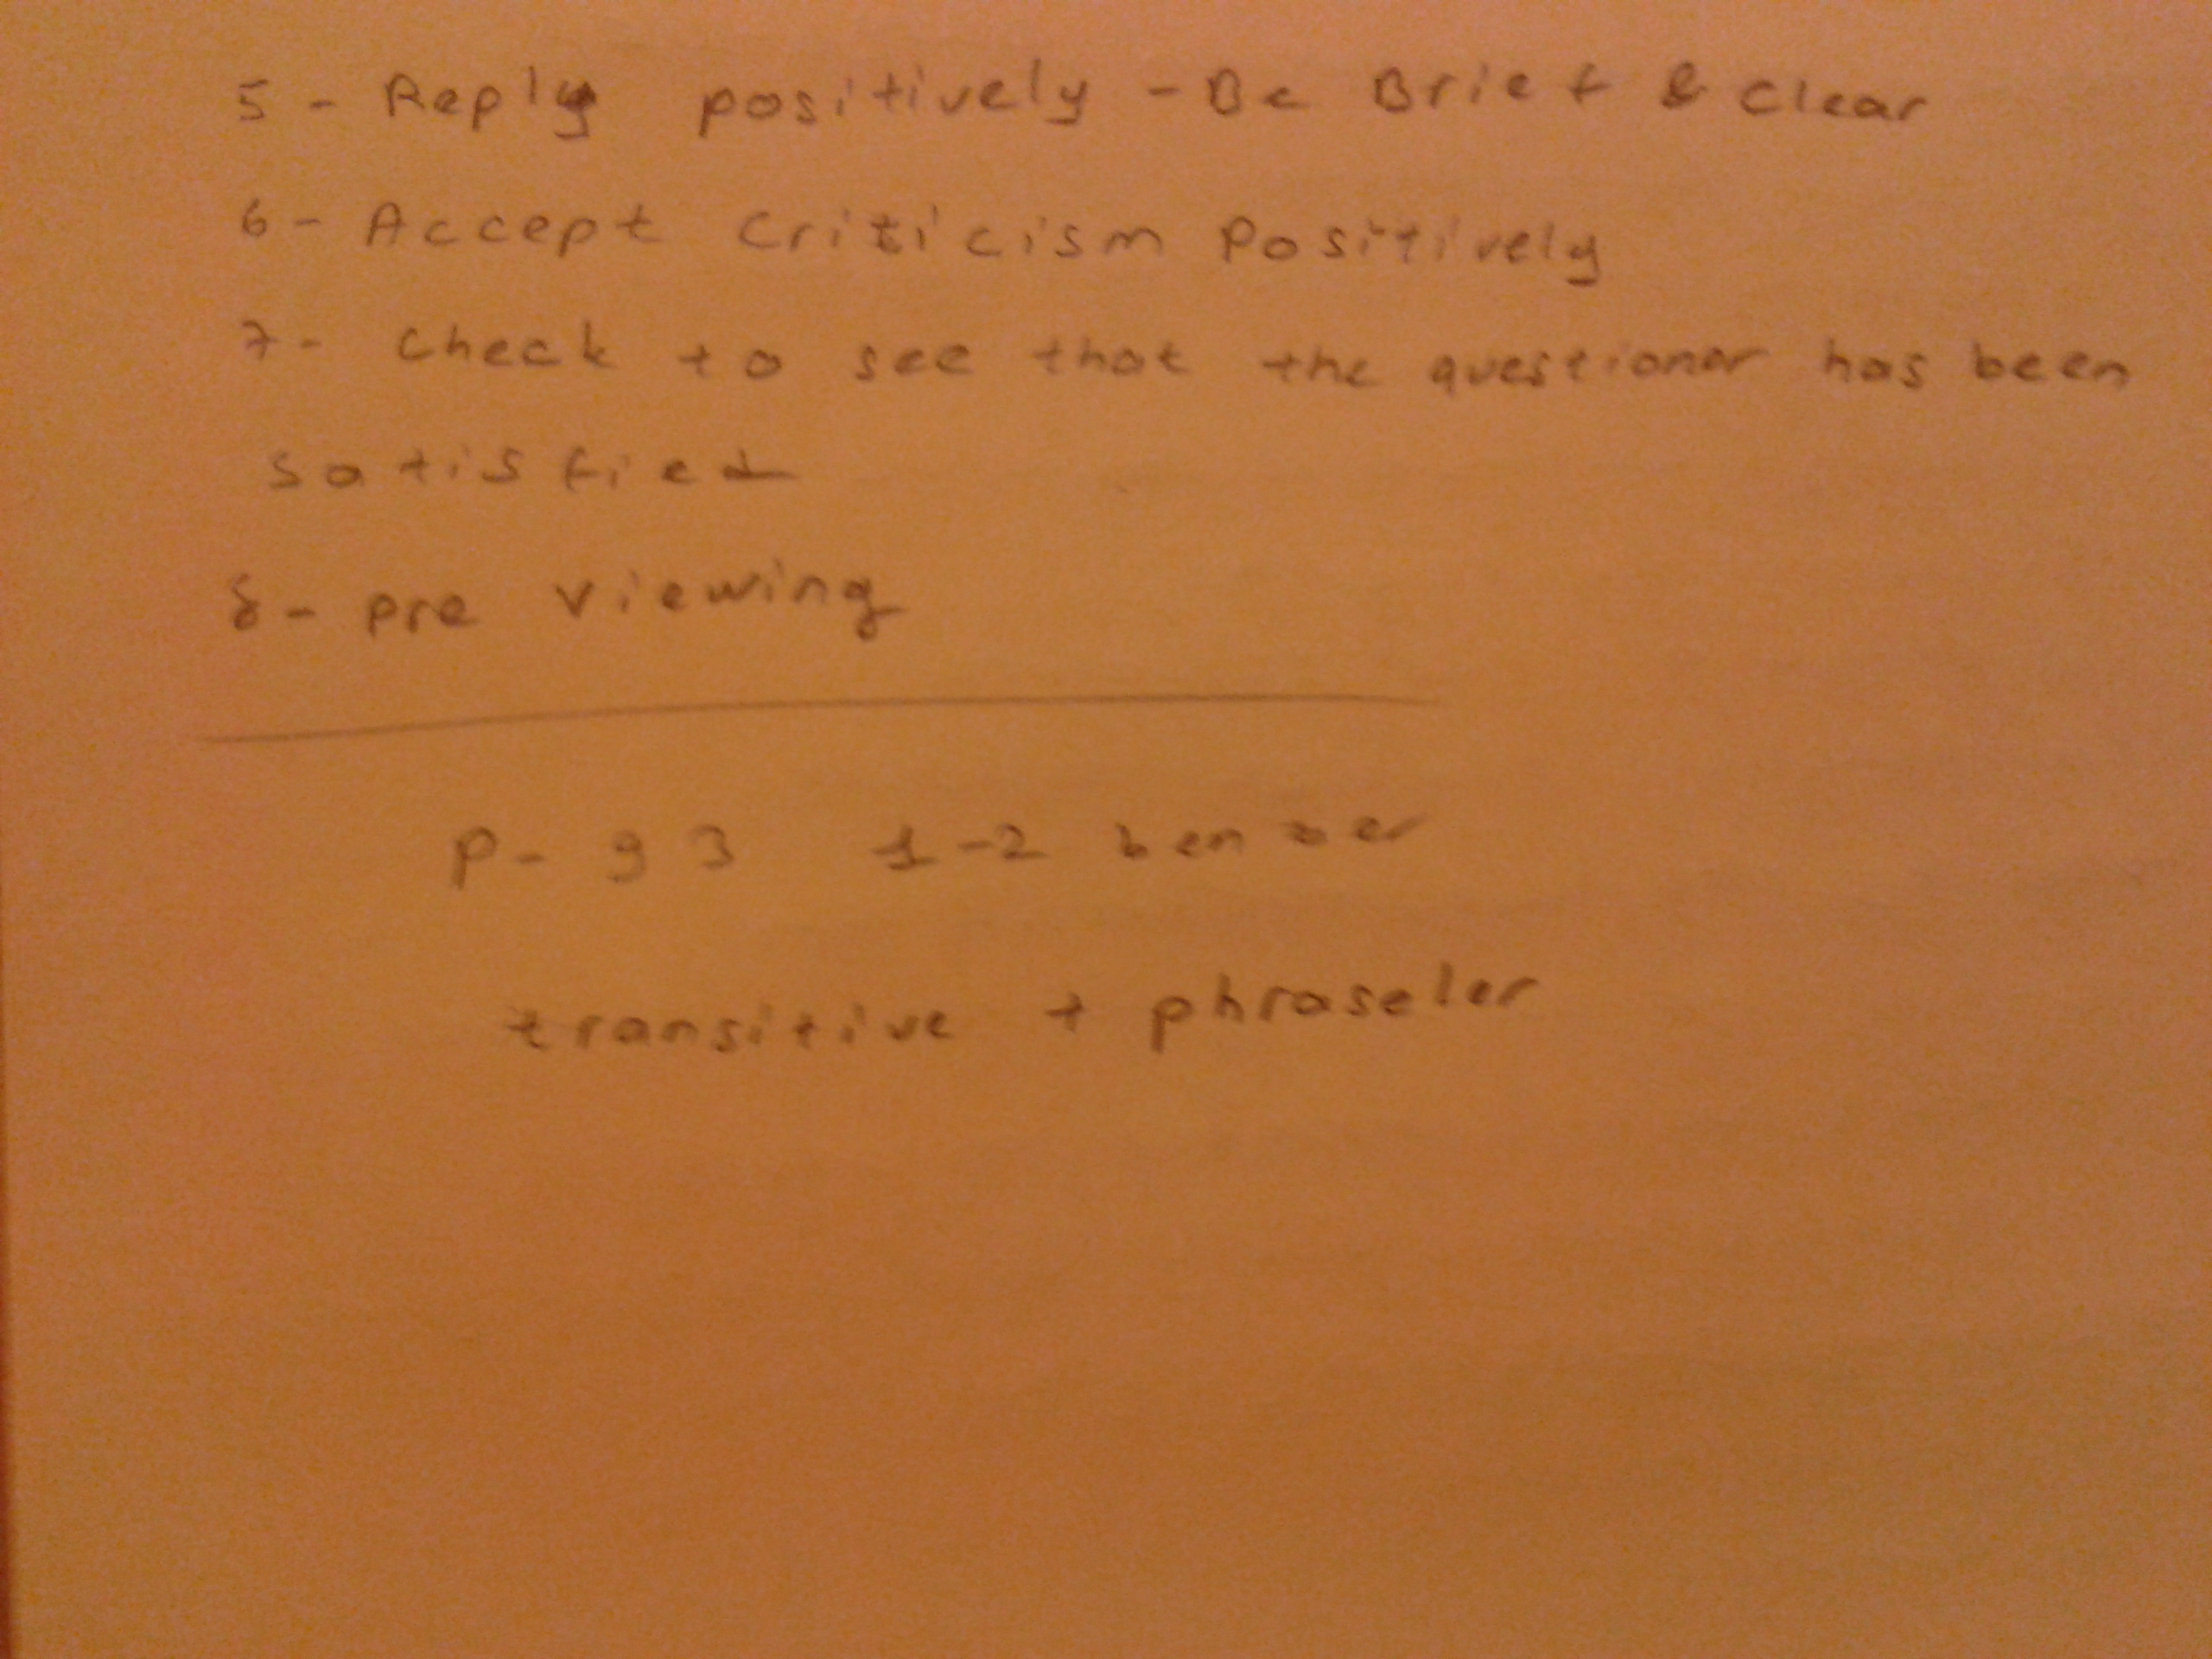 5 - Reply positively - Be Brief & Clear
6 - Accept Criticism Positively
7 - Check to see that the questioner has been
satisfied
8 - pre viewing
P - 93 1-2 benzer
transitive + phraseler